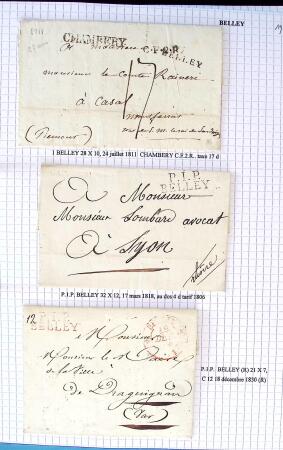 BELLEY
19
1811
CHAMBERY
C.F.2.R.
BELLEY
A madame
monsieur le comte Raineri
17
à Casal
montferrat
(Piemont)
1 BELLEY 28 X 10, 24 juillet 1811 CHAMBERY C.F.2.R. taxe 17 d
P.1.P.
BELLEY
A Monsieur
Monsieur Lombard avocat
A Lyon
P.1.P. BELLEY 32 X 12, 17 mars 1818, au dos 4 d tarif 1806
12
P.1.P.
BELLEY
A Monsieur
Monsieur le
de la
De Draguignan
(Var)
P.1.P. BELLEY (R) 21 X 7,
C 12 18 décembre 1830 (R)